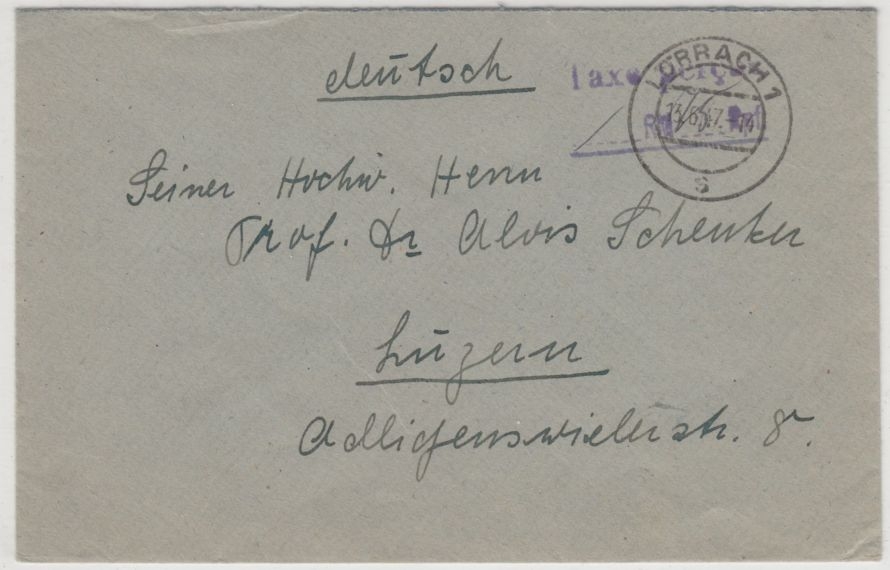 deutsch
Taxe perçue
LÖRRACH 1
13.6.47.-14
R
Pf
s
Seiner Hochw. Herrn
Prof. Dr Alois Schenker
Luzern
Adligenswielerstr. 8.